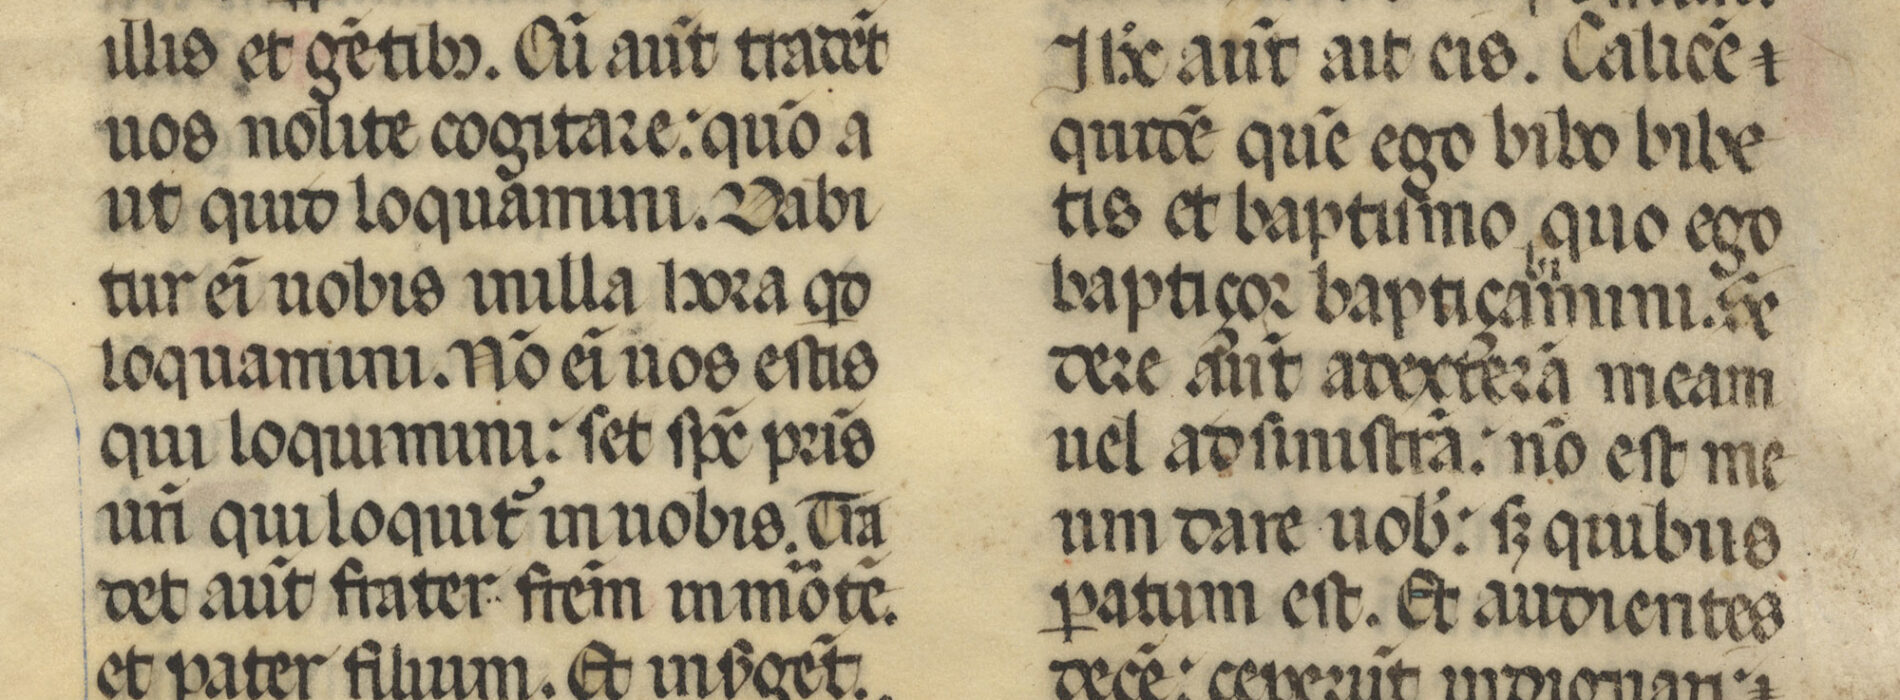 illis et ge̅tibꝫ. Cu̅ au̅t tradēt
uos nolite cogitare: quo̅ a
ut quid loquamini. Dabi
tur ei̅ uobis in illa hora qd̅
loquamini. No̅ ei̅ uos estis
qui loquimini: set sp̅c pr̅is
ur̅i qui loquit᷑ in uobis. Tra
det au̅t frater fr̅em in mo̅te̅.
et pater filium. Et insv̅ge̅t.
Ih̅c au̅t ait eis. Calice̅ ⁊
quide̅ que̅ ego bibo bibe
tis et baptismo, quo ego
baptiçor baptiçamini. Se̅
dere au̅t adexte̅ra̅ meam
uel ad sinistra̅: no̅ est me
um dare uob̅: sꝫ quibus
ꝑatum est. Et audientes
dece̅: ceperu̅t indignari ⁊